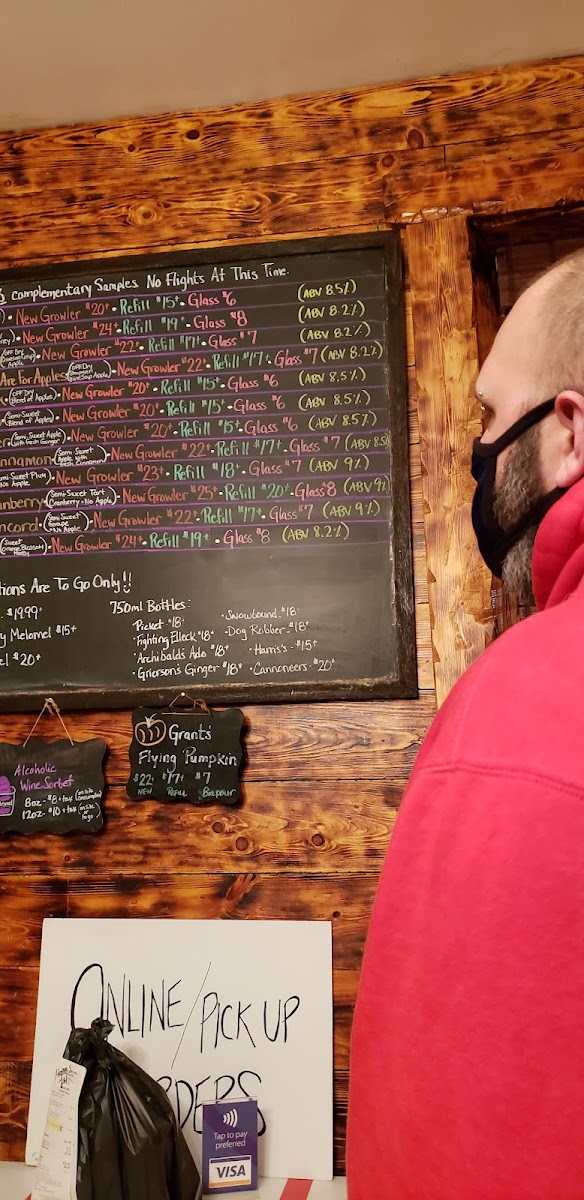 complementary Samples. No Flights At This Time.
New Growler $20+ · Refill $15+ · Glass $6 (ABV 8.5%)
New Growler $24+ · Refill $19+ · Glass $8 (ABV 8.2%)
New Growler $22+ · Refill $17+ · Glass $7 (ABV 8.2%)
Are For Apples New Growler $22+ · Refill $17+ · Glass $7 (ABV 8.2%)
(Off Dry Blend of Apples) New Growler $20+ · Refill $15+ · Glass $6 (ABV 8.5%)
(Semi-Sweet Blend of Apples) New Growler $20+ · Refill $15+ · Glass $6 (ABV 8.5%)
(Semi-Sweet Apple with fresh Ginger) New Growler $20+ · Refill $15+ · Glass $6 (ABV 8.5%)
nnamon (Semi-Sweet Apple with fresh Cinnamon) New Growler $22+ · Refill $17+ · Glass $7 (ABV 8.5%
Semi-Sweet Plum No Apple) New Growler $23+ · Refill $18+ · Glass $7 (ABV 9%)
anberry (Semi-Sweet Tart Cranberry - No Apple) New Growler $25+ · Refill $20+ · Glass $8 (ABV 9%)
ncord (Semi-Sweet Grape No Apple) New Growler $22+ · Refill $17+ · Glass $7 (ABV 9%)
Sweet Orange Blossom Honey) New Growler $24+ · Refill $19+ · Glass $8 (ABV 8.2%)
tions Are To Go Only!!
$19.99+
y Melomel $15+
el $20+
750ml Bottles:
· Picket $18+
· Fighting Elleck $18+
· Archibald's Ado $18+
· Grierson's Ginger $18+
· Snowbound $18+
· Dog Robber $18+
· Harris's $15+
· Cannoneers $20+
Alcoholic
Wine Sorbet
8oz - $8 + tax (on site consumption)
12oz - $10 + tax (on site or to go)
Grant's
Flying Pumpkin
$22+ $17+ $7
New Refill 8oz pour
ONLINE/PICK UP
RDERS
Tap to pay
preferred
VISA